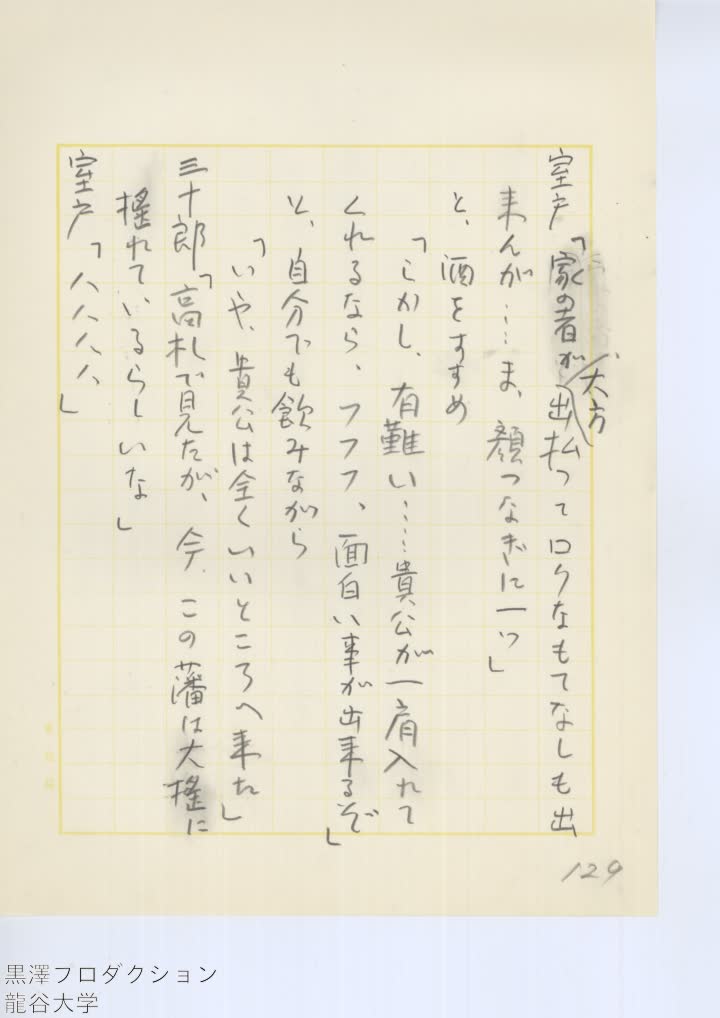 室戸「家の者が大方出払ってロクなもてなしも出
来んが……ま、顔つなぎに一つ」
と、酒をすすめ
「しかし、有難い……貴公が一肩入れて
くれるなら、フフフ、面白い事が出来るぞ」
と、自分でも飲みながら
「いや、貴公は全くいいところへ来た」
三十郎「高札で見たが、今、この藩は大揺に
揺れているらしいな」
室戸「ハハハハ」
129
黒澤プロダクション
龍谷大学